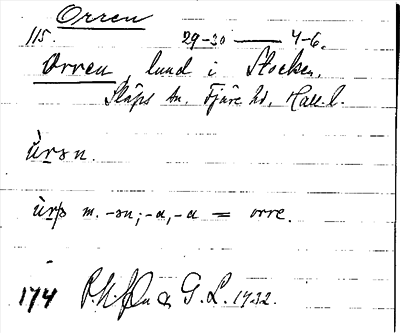 Orren
115. 29-30 — 4-6.
Orren, lund i Stocken,
Släps sn, Fjäre hd, Hall. l.
ùrsn.
ùrs m. -sn; -a, -a = orre.
174 G. L. 1932.